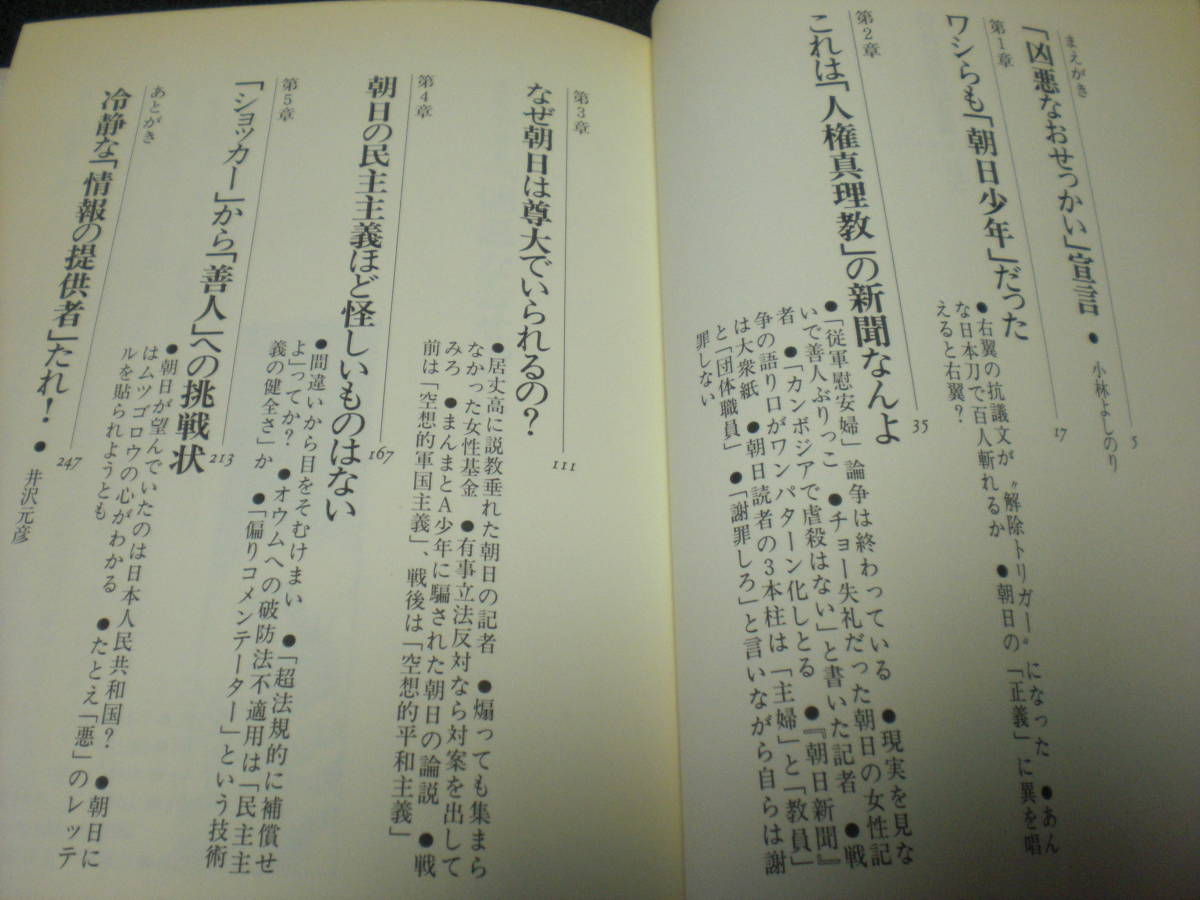 まえがき
「凶悪なおせっかい」宣言 ● 小林よしのり
5
第1章
ワシらも「朝日少年」だった
17
●右翼の抗議文が〝解除トリガー〟になった ●あん
な日本刀で百人斬れるか ●朝日の「正義」に異を唱
えると右翼?
第2章
これは「人権真理教」の新聞なんよ
35
●「従軍慰安婦」論争は終わっている ●現実を見な
いで善人ぶりっこ ●チョー失礼だった朝日の女性記
者 ●「カンボジアで虐殺はない」と書いた記者 ●戦
争の語り口がワンパターン化しとる ●『朝日新聞』
は大衆紙 ●朝日読者の3本柱は「主婦」と「教員」
と「団体職員」 ●「謝罪しろ」と言いながら自らは謝
罪しない
第3章
なぜ朝日は尊大でいられるの?
111
●居丈高に説教垂れた朝日の記者 ●煽っても集まら
なかった女性基金 ●有事立法反対なら対案を出して
みろ ●まんまとA少年に騙された朝日の論説 ●戦
前は「空想的軍国主義」、戦後は「空想的平和主義」
第4章
朝日の民主主義ほど怪しいものはない
167
●間違いから目をそむけまい ●「超法規的に補償せ
よ」ってか? ●オウムへの破防法不適用は「民主主
義の健全さ」か ●「偏りコメンテーター」という技術
第5章
「ショッカー」から「善人」への挑戦状
213
●朝日が望んでいたのは日本人民共和国? ●朝日に
はムツゴロウの心がわかる ●たとえ「悪」のレッテ
ルを貼られようとも
あとがき
冷静な「情報の提供者」たれ! ● 井沢元彦
247